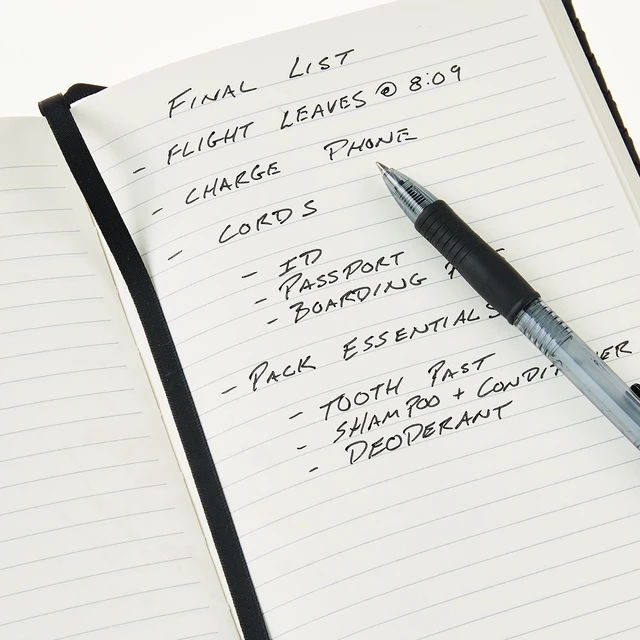 FINAL LIST
- FLIGHT LEAVES @ 8:09
- CHARGE PHONE
- CORDS
- ID
- PASSPORT
- BOARDING
- PACK ESSENTIALS
- TOOTH PAST
- SHAMPOO +
- DEODERANT